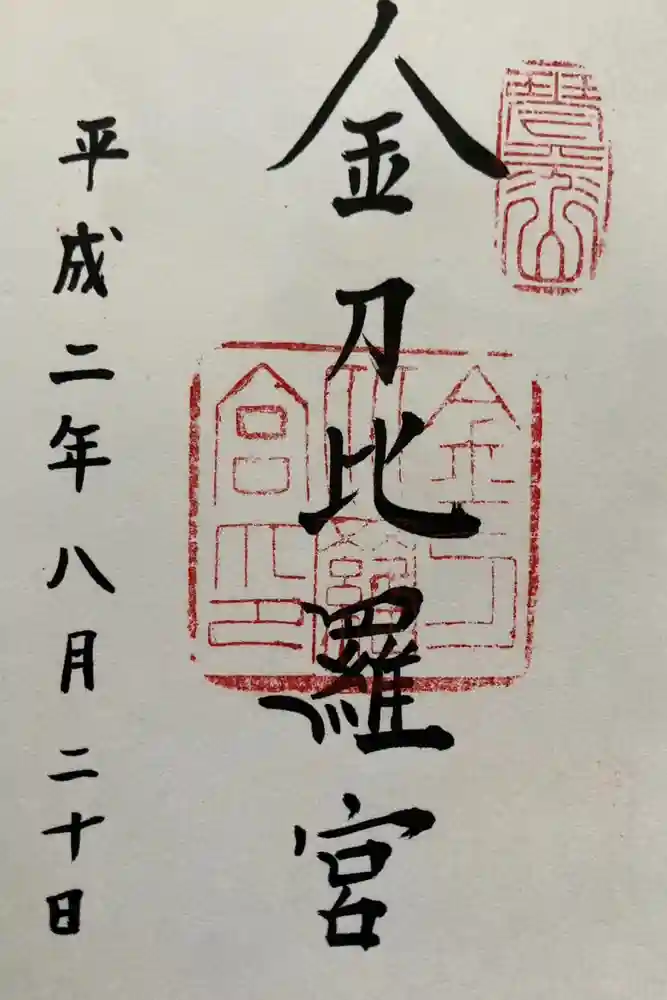 琴平山
金刀比羅宮
金刀
比羅
宮之印
平成二年八月二十日